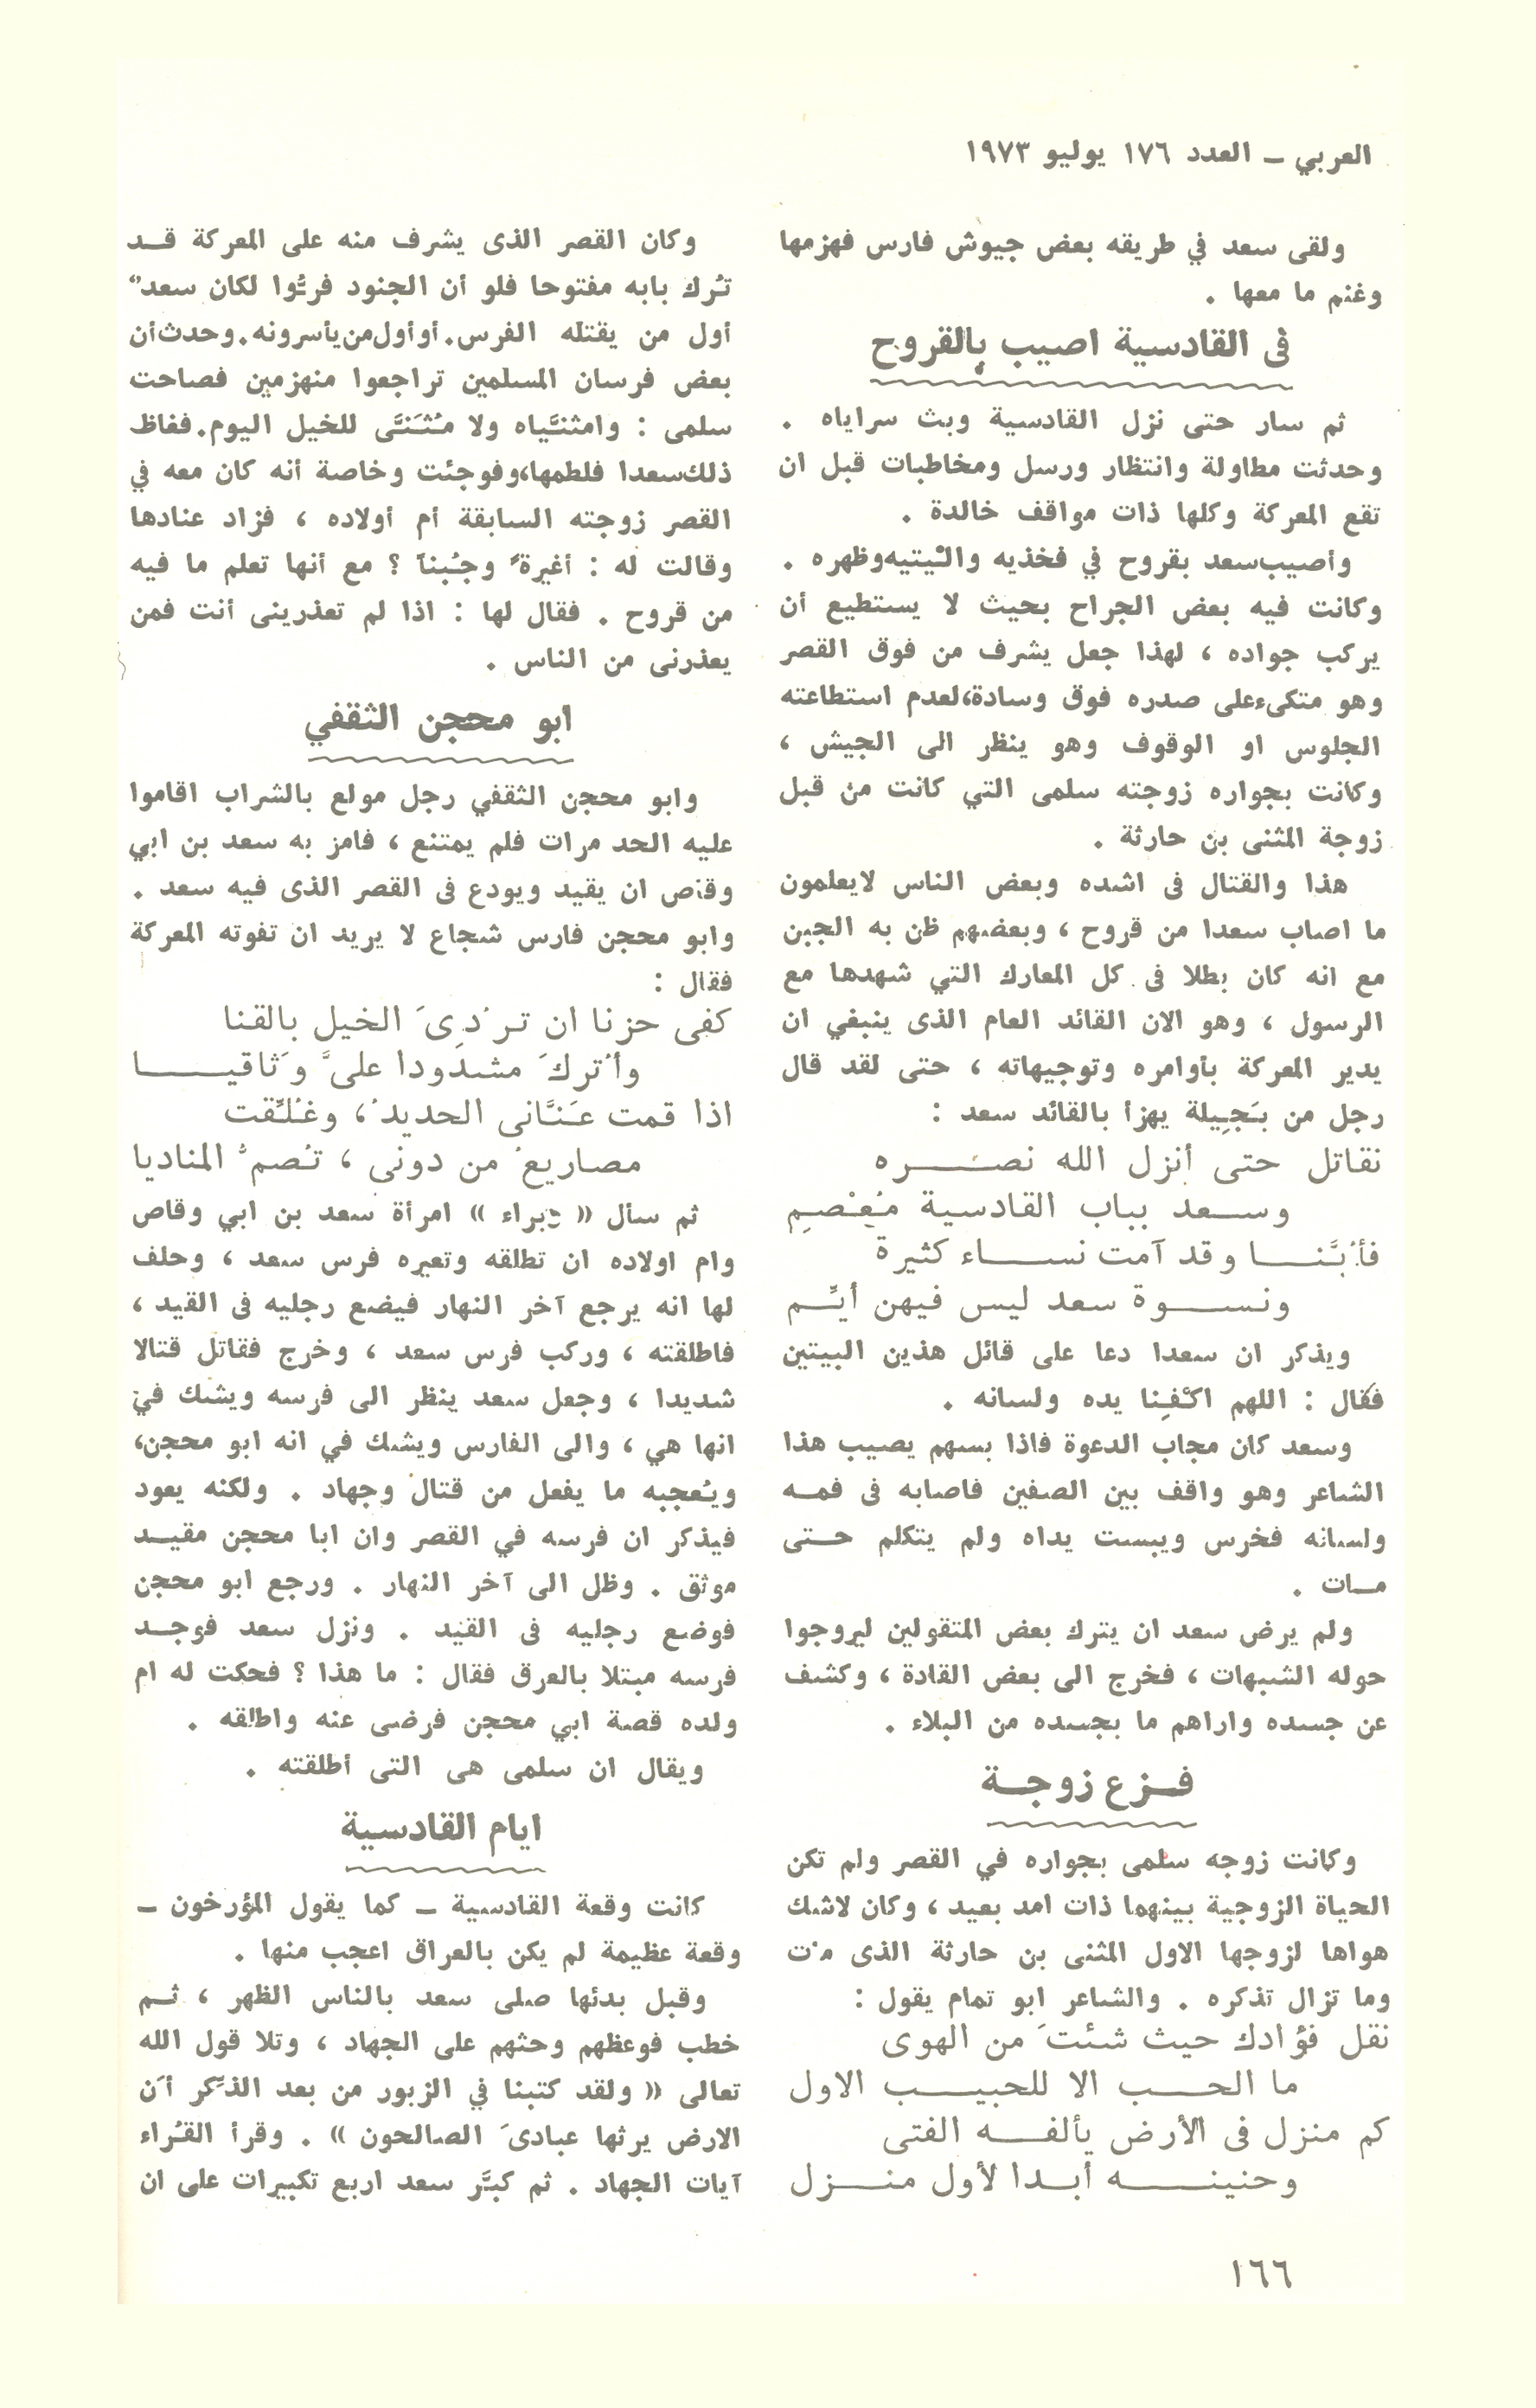 العربي – العدد ١٧٦ يوليو ١٩٧٣
ولقى سعد في طريقه بعض جيوش فارس فهزمها
وغنم ما معها .
في القادسية اصيب بالقروح
ثم سار حتى نزل القادسية وبث سراياه .
وحدثت مطاولة وانتظار ورسل ومخاطبات قبل ان
تقع المعركة وكلها ذات مواقف خالدة .
وأصيب سعد بقروح في فخذيه والْيتيه وظهره .
وكانت فيه بعض الجراح بحيث لا يستطيع أن
يركب جواده ، لهذا جعل يشرف من فوق القصر
وهو متكىء على صدره فوق وسادة، لعدم استطاعته
الجلوس او الوقوف وهو ينظر الى الجيش ،
وكانت بجواره زوجته سلمى التي كانت من قبل
زوجة المثنى بن حارثة .
هذا والقتال فى اشده وبعض الناس لايعلمون
ما اصاب سعدا من قروح ، وبعضهم ظن به الجبن
مع انه كان بطلا فى كل المعارك التي شهدها مع
الرسول ، وهو الان القائد العام الذى ينبغي ان
يدير المعركة بأوامره وتوجيهاته ، حتى لقد قال
رجل من بَجِيلة يهزأ بالقائد سعد :
نقاتل حتى أنزل الله نصـــره
وســعد بباب القادسية مُعْصِم
فأُبَّنــا وقد آمت نســاء كثيرة
ونســوة سعد ليس فيهن أيِّـم
ويذكر ان سعدا دعا على قائل هذين البيتين
فقال : اللهم اكْفِنا يده ولسانه .
وسعد كان مجاب الدعوة فاذا بسهم يصيب هذا
الشاعر وهو واقف بين الصفين فاصابه فى فمــه
ولسانه فخرس ويبست يداه ولم يتكلم حــتى
مــات .
ولم يرض سعد ان يترك بعض المتقولين ليروجوا
حوله الشبهات ، فخرج الى بعض القادة ، وكشف
عن جسده واراهم ما بجسده من البلاء .
فــزع زوجــة
وكانت زوجه سلمى بجواره في القصر ولم تكن
الحياة الزوجية بينهما ذات امد بعيد ، وكان لاشك
هواها لزوجها الاول المثنى بن حارثة الذى مات
وما تزال تذكره . والشاعر ابو تمام يقول :
نقل فؤادك حيث شئتَ من الهوى
ما الحــب الا للحبيــب الاول
كم منزل فى الأرض يألفــه الفتى
وحنينــــه أبــدا لأول منــزل
وكان القصر الذى يشرف منه على المعركة قــد
تُرك بابه مفتوحا فلو أن الجنود فرُّوا لكان سعدٌ
أول من يقتله الفرس. أو أول من يأسرونه. وحدث أن
بعض فرسان المسلمين تراجعوا منهزمين فصاحت
سلمى : وامثنَّياه ولا مُثَنَّى للخيل اليوم. فغاظ
ذلك سعدا فلطمها، وفوجئت وخاصة أنه كان معه في
القصر زوجته السابقة أم أولاده ، فزاد عنادها
وقالت له : أغيرةً وجُبناً ؟ مع أنها تعلم ما فيه
من قروح . فقال لها : اذا لم تعذرينى أنت فمن
يعذرنى من الناس .
ابو محجن الثقفي
وابو محجن الثقفي رجل مولع بالشراب اقاموا
عليه الحد مرات فلم يمتنع ، فامر به سعد بن ابي
وقاص ان يقيد ويودع فى القصر الذى فيه سعد .
وابو محجن فارس شجاع لا يريد ان تفوته المعركة
فقال :
كفى حزنا ان ترْدِىَ الخيل بالقنا
وأُتركَ مشدودا علىَّ وَثاقيــــا
اذا قمت عَنَّانى الحديدُ ، وغُلِّقت
مصاريعُ من دونى ، تُصمُّ المناديا
ثم سأل « زبراء » امرأة سعد بن ابي وقاص
وام اولاده ان تطلقه وتعيره فرس سعد ، وحلف
لها انه يرجع آخر النهار فيضع رجليه فى القيد ،
فاطلقته ، وركب فرس سعد ، وخرج فقاتل قتالا
شديدا ، وجعل سعد ينظر الى فرسه ويشك في
انها هي ، والى الفارس ويشك في انه ابو محجن،
ويُعجبه ما يفعل من قتال وجهاد . ولكنه يعود
فيذكر ان فرسه في القصر وان ابا محجن مقيــد
موثق . وظل الى آخر النهار . ورجع ابو محجن
فوضع رجليه فى القيد . ونزل سعد فوجــد
فرسه مبتلا بالعرق فقال : ما هذا ؟ فحكت له ام
ولده قصة ابي محجن فرضى عنه واطلقه .
ويقال ان سلمى هى التى أطلقته .
ايام القادسية
كانت وقعة القادسية – كما يقول المؤرخون –
وقعة عظيمة لم يكن بالعراق اعجب منها .
وقبل بدئها صلى سعد بالناس الظهر ، ثــم
خطب فوعظهم وحثهم على الجهاد ، وتلا قول الله
تعالى « ولقد كتبنا في الزبور من بعد الذِّكر أَن
الارض يرثها عبادىَ الصالحون » . وقرأ القُراء
آيات الجهاد . ثم كبَّر سعد اربع تكبيرات على ان
١٦٦